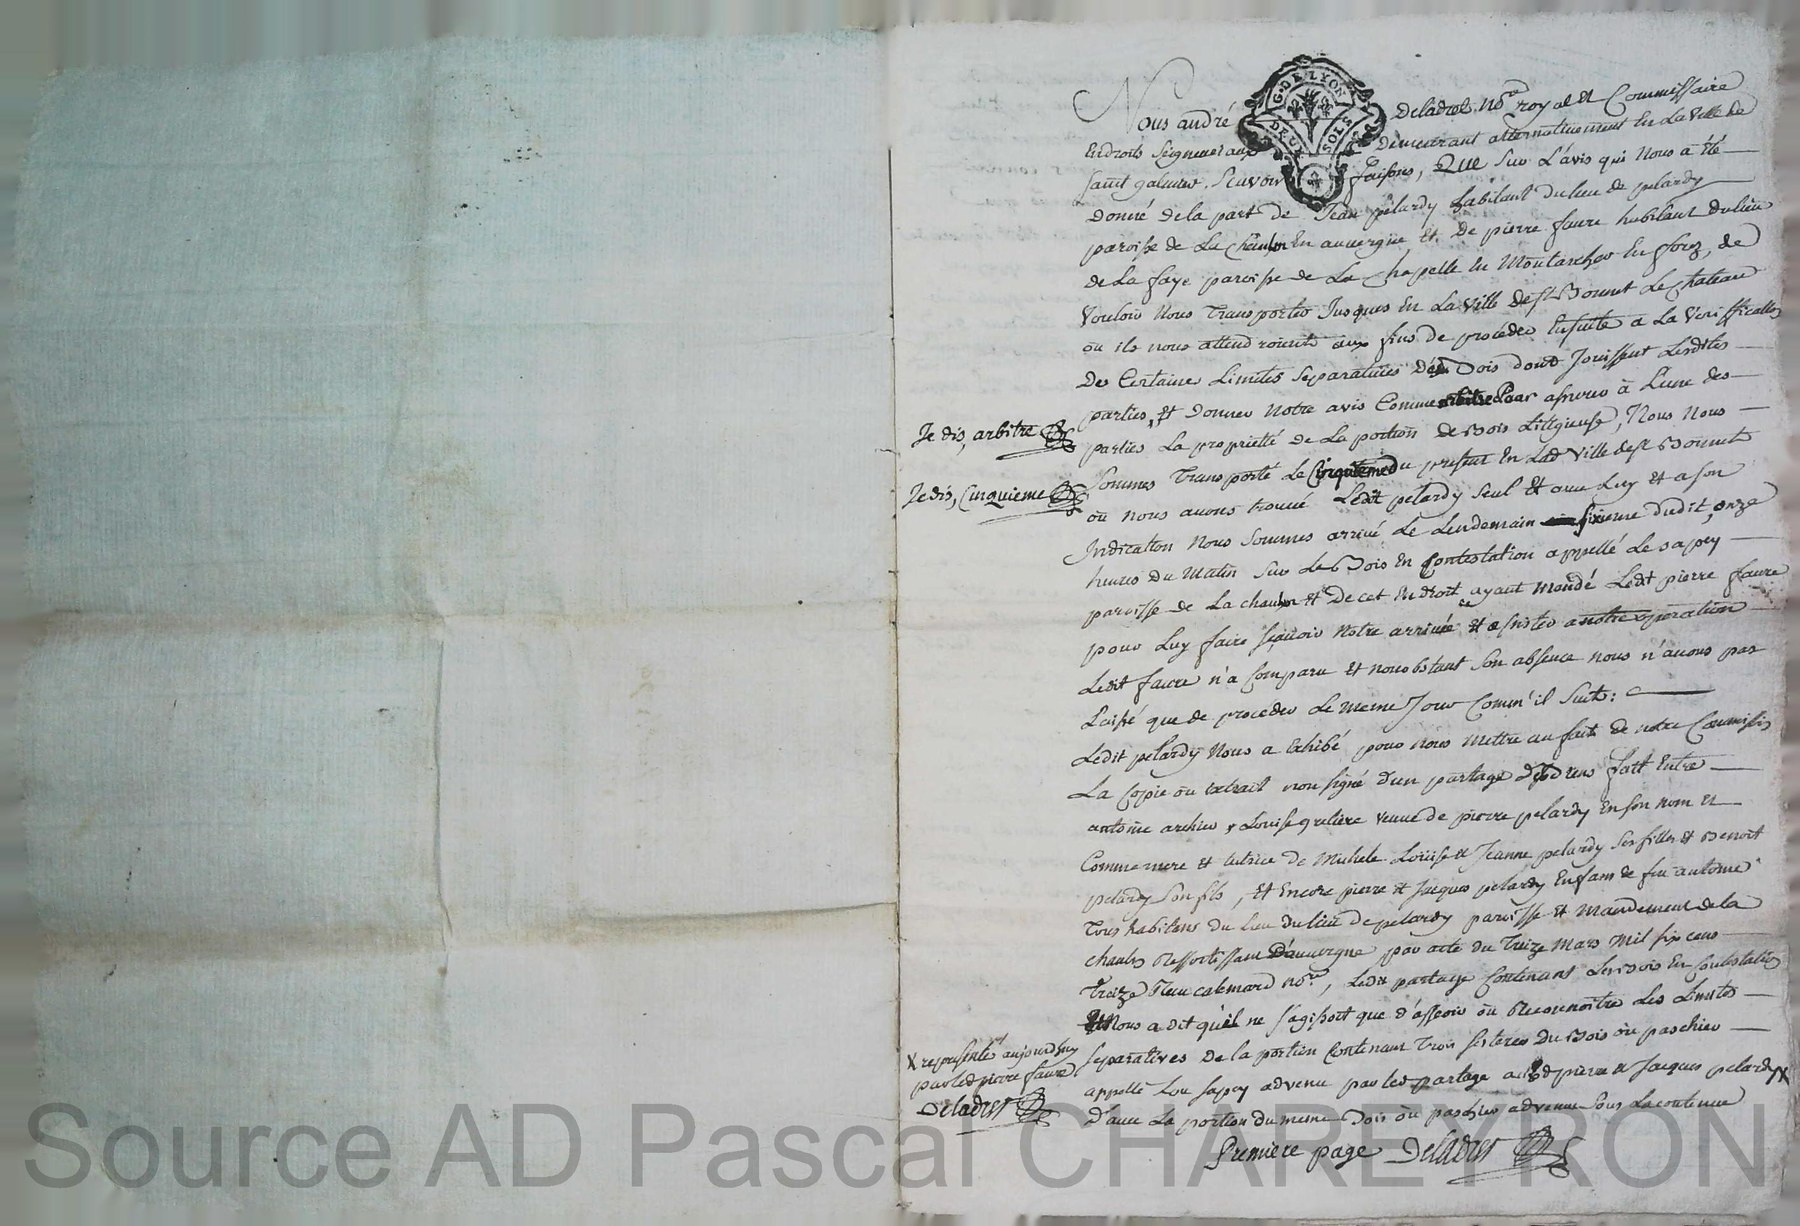 G. DE LYON
DEUX SOLS
Nous andré Deladret Nore royal et Commissaire
Endroits seigneuriaux Demeurant alternativement En La Ville de
saint galmier. Scavoir faisons, Que sur L'avis qui Nous a été
donné de la part de Jean pelardy habitant du lieu de pelardy
paroisse de La Chaulm En auvergne et De pierre faure habitant du lieu
de La faye paroisse de La Chapelle En Montarcher En forez, de
vouloir Nous Transporter Jusques En La Ville de st Bonnet Le Chateau
ou ils nous attendroient aux fins de proceder Ensuite a La Veriffication
De Certaine Limites separatives Des Bois dont Jouissent Lesdites
parties, Et donner Notre avis Comme arbitre Pour assurer à L'une des
Je dis, arbitre
parties La proprietté de La portion de Bois Litigieuse, Nous Nous
sommes Transporté Le Cinquieme du present En Lad Ville de st Bonnet
Je dis, Cinquieme
où nous avons trouvé Ledit pelardy seul Et avec Luy et a son
Indication Nous sommes arrivé Le Lendemain sixieme dudit, onze
heures du Matin sur Le Bois En Contestation appellé Le sapey
paroisse de La chaulm Et De cet Endroit ayant Mandé Ledt pierre faure
pour Luy faire sçavoir Notre arrivée Et assister a notre operation
Ledit faure n'a Comparu Et nonobstant son absence nous n'avons pas
Laissé que de proceder Le meme Jour Comm'il suit:
Ledit pelardy Nous a Exhibé pour nous mettre au fait de notre Commission
La Copie ou extrait non signé d'un partage fait Entre
antoine archer & Louise greliere veuve de pierre pelardy En son nom et
Comme mere et tutrice de Michele Louise & Jeanne pelardy ses filles et Benoit
pelardy son fils, Et Encore pierre et Jacques pelardy Enfans de feu antoine
Tous habitans du lieu du lieu de pelardy paroisse Et Mandement de la
chaulm Ressortissant D'auvergne par acte du Treize Mars Mil six cens
Treize Reçu calemard nore, Ledit partage Contenant Les Bois En Contestation
Nous a dit qu'il ne s'agissoit que d'asseoir où Reconnoitre Les Limites
separatives De la portion Contenant Trois sesterées Du Bois où paschier
X representé aujourd'huy
par led pierre faure
Deladret
appellé Lou sapey advenu par led partage aud pierre & Jacques pelardy X
D'avec La portion du meme Bois où paschier advenue sous La contenue
Premiere page Deladret
Source AD Pascal CHAREYRON